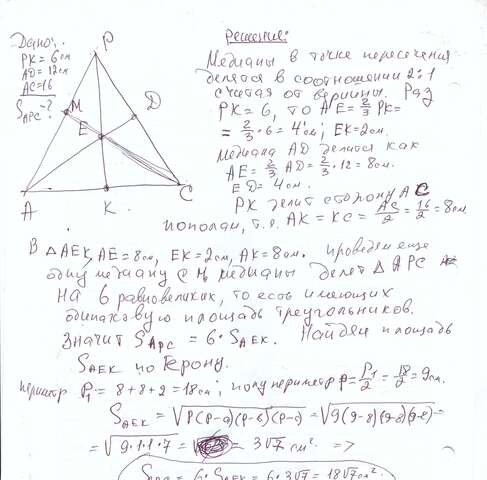 Дано:
PK = 6 см
AD = 12 см
AC = 16
S_APC - ?
P
M
D
E
A
K
C
Решение:
Медианы в точке пересечения
делятся в соотношении 2:1
считая от вершины. Раз
PK = 6, то
= 2/3 · 6 = 4 см; EK = 2 см.
Медиана AD делится как
AE = 2/3 AD = 2/3 · 12 = 8 см.
ED = 4 см.
PK делит сторону AC
пополам, т.е. AK = KC = AC/2 = 16/2 = 8 см.
В △AEK, AE = 8 см, EK = 2 см, AK = 8 см. проведем еще
одну медиану CM, медианы делят △APC
на 6 равновеликих, то есть имеющих
одинаковую площадь треугольников.
Значит S_APC = 6 · S_AEK. Найдем площадь
S_AEK по Герону.
периметр P₁ = 8 + 8 + 2 = 18 см; полупериметр p = P₁/2 = 18/2 = 9 см.
S_AEK = √(p(p-a)(p-b)(p-c)) = √(9(9-8)(9-8)(9-2)) =
= √(9·1·1·7) = 3√7 см². =>
S_APC = 6 · S_AEK = 6 · 3√7 = 18√7 см².